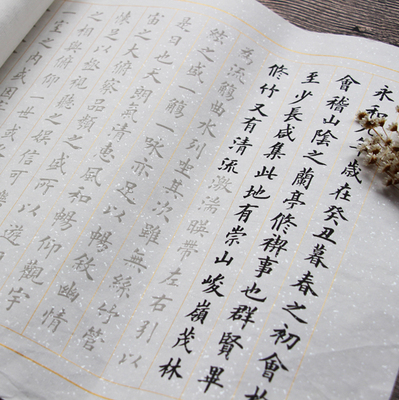 永和九歲在癸丑暮春之初會
會稽山陰之蘭亭修禊事也群賢畢
至少長咸集此地有崇山峻嶺茂林
修竹又有清流激湍暎帶左右引以
為流觴曲水列坐其次雖無絲竹管
絃之盛一觴一詠亦足以暢敘幽情
是日也天朗氣清惠風和暢仰觀宇
宙之大俯察品類之盛所以遊
懷足以極視聽之娛信可
之相與俯仰一世或
室之內或因